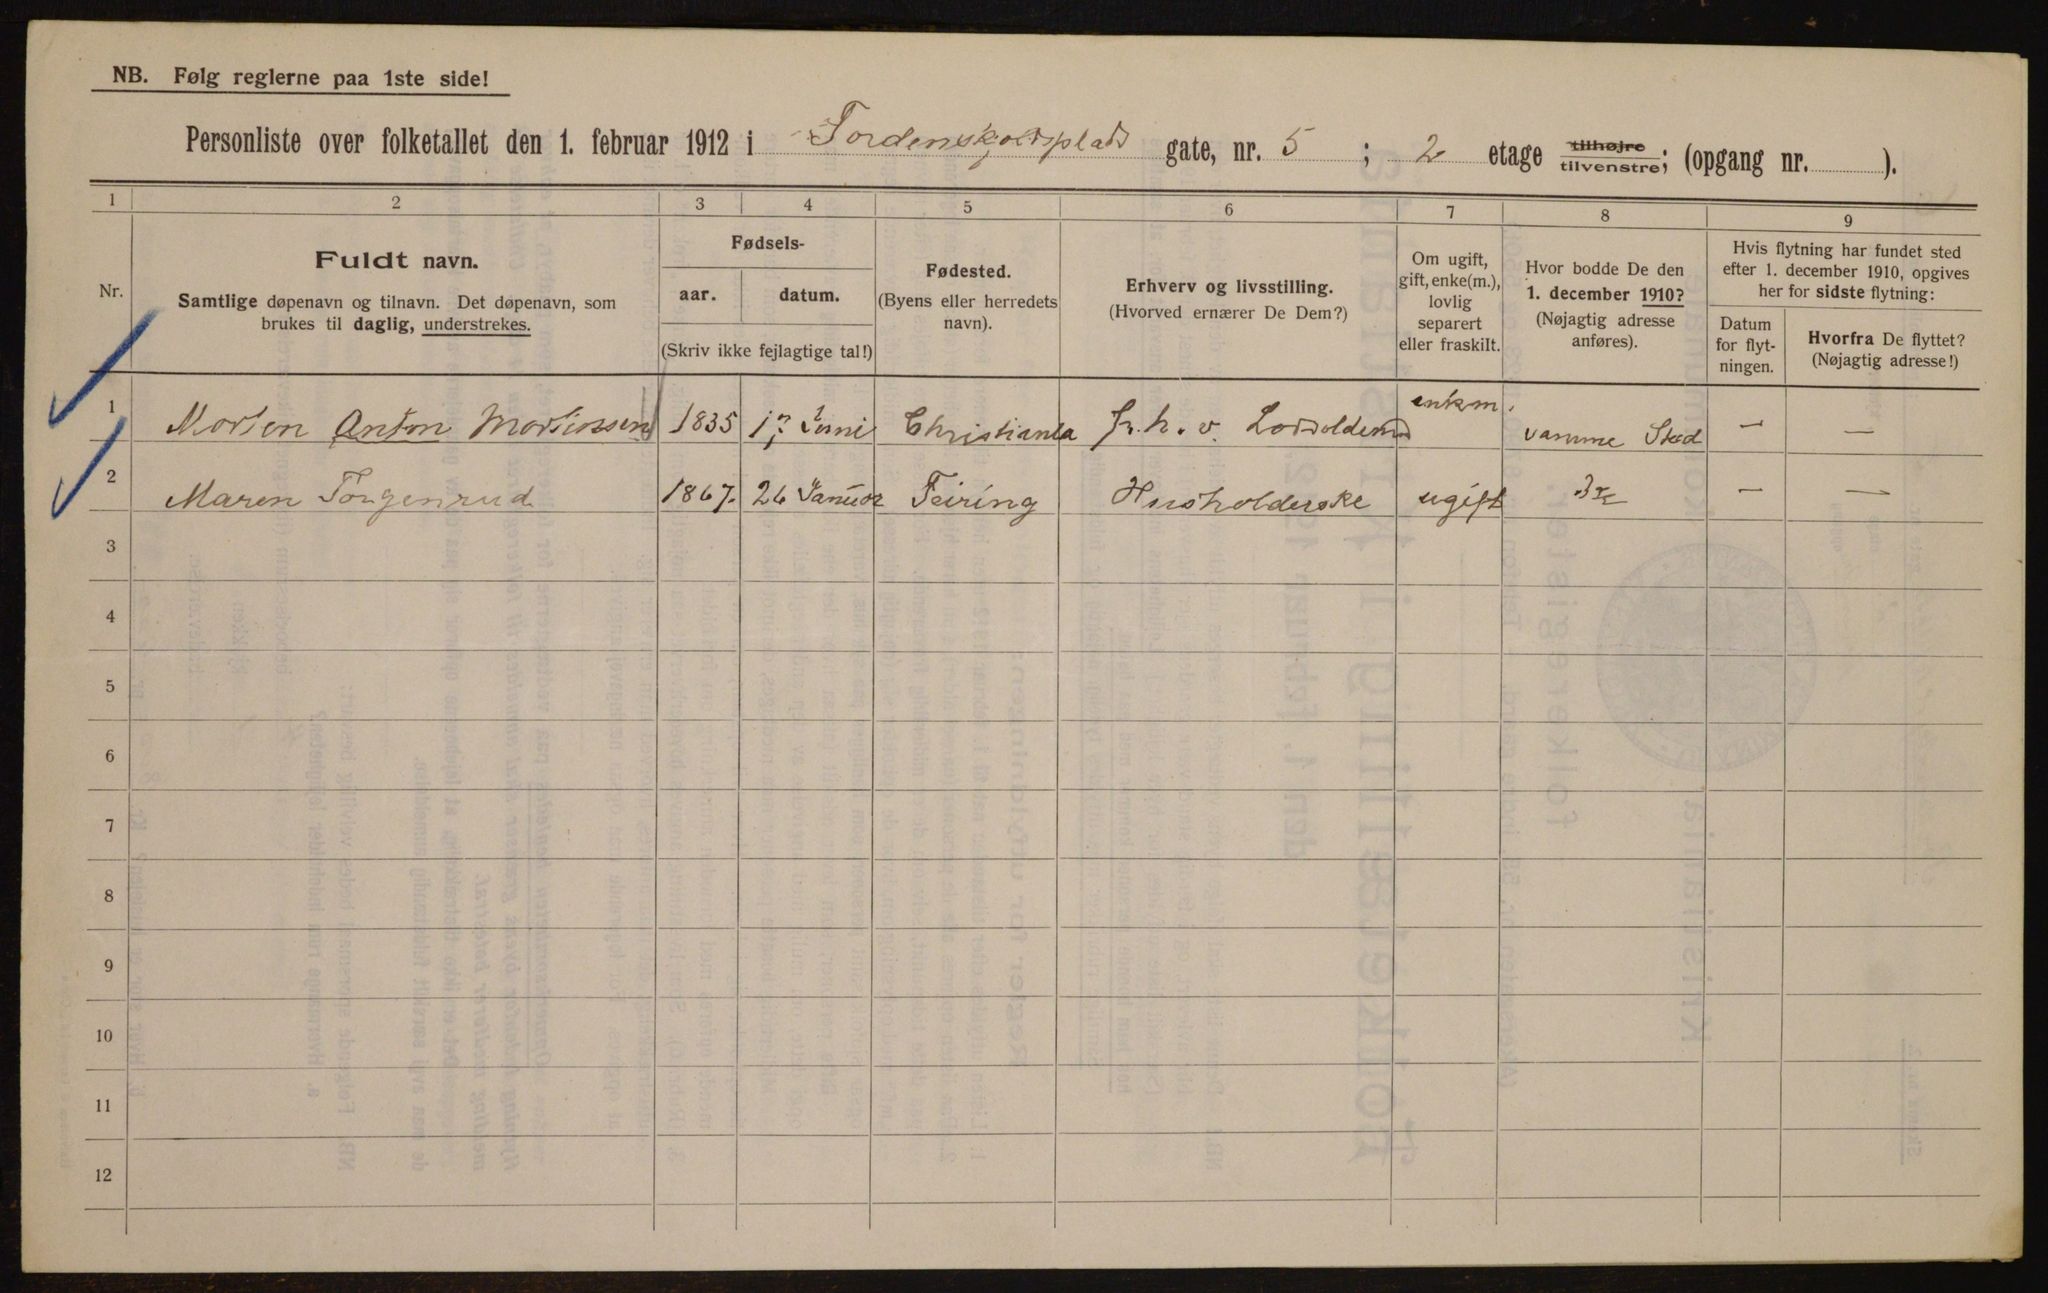 NB. Følg reglerne paa 1ste side!
Personliste over folketallet den 1. februar 1912 i Tordenskjoldsplads gate, nr. 5 ; 2 etage tilhøjre tilvenstre; (opgang nr. ).
1 2 3 4 5 6 7 8 9
Nr.
Fuldt navn.
Samtlige døpenavn og tilnavn. Det døpenavn, som
brukes til daglig, understrekes.
Fødsels-
aar. datum.
(Skriv ikke fejlagtige tal!)
Fødested.
(Byens eller herredets
navn).
Erhverv og livsstilling.
(Hvorved ernærer De Dem?)
Om ugift,
gift, enke(m.),
lovlig
separert
eller fraskilt.
Hvor bodde De den
1. december 1910?
(Nøjagtig adresse
anføres).
Hvis flytning har fundet sted
efter 1. december 1910, opgives
her for sidste flytning:
Datum
for flyt-
ningen.
Hvorfra De flyttet?
(Nøjagtig adresse!)
1 Morten Anton Mortensen 1835 Juni Christiania enkm. samme Sted — —
2 Maren Torgenrud 1867. 26 Januar Feiring Husholderske ugift — —
3
4
5
6
7
8
9
10
11
12